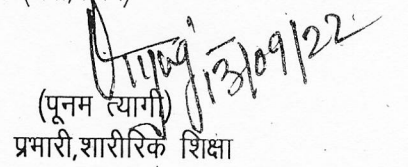 13/09/22
(पूनम त्यागी)
प्रभारी,शारीरिक शिक्षा